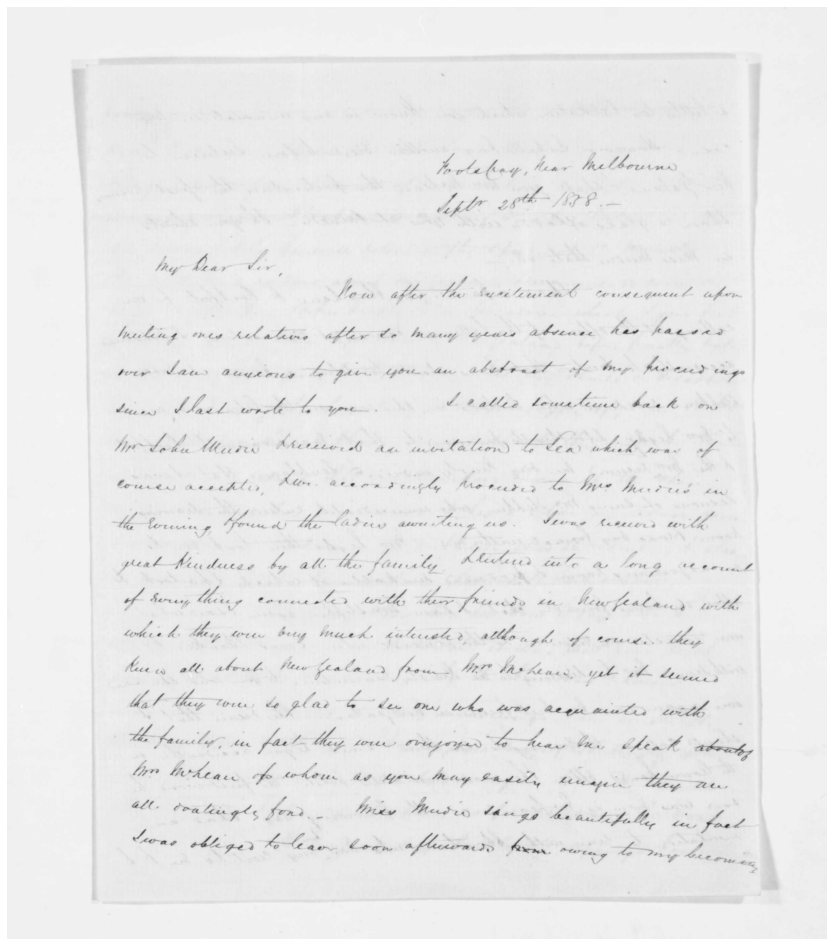 Footscray, Near Melbourne
Septr 28th 1858.-
My Dear Sir,
Now after the excitement consequent upon
meeting ones relatives after so many years absence has passed
over I am anxious to give you an abstract of my proceedings
since I last wrote to you. I called sometime back on
Mrs John Mudie & received an invitation to Tea which was of
course accepted, & we accordingly proceeded to Mrs Mudie's in
the Evening & found the ladies awaiting us. I was received with
great Kindness by all the family & entered into a long account
of Everything connected with their friends in New Zealand with
which they were very much interested although of course they
Knew all about New Zealand from Mrs McLean, yet it seemed
that they were so glad to see one who was acquainted with
the family, in fact they were overjoyed to hear me speak about of
Mrs McLean of whom as you may easily imagin they are
all doatingly fond.- Miss Mudie sings beautifully in fact
I was obliged to leave soon afterwards from owing to my becoming